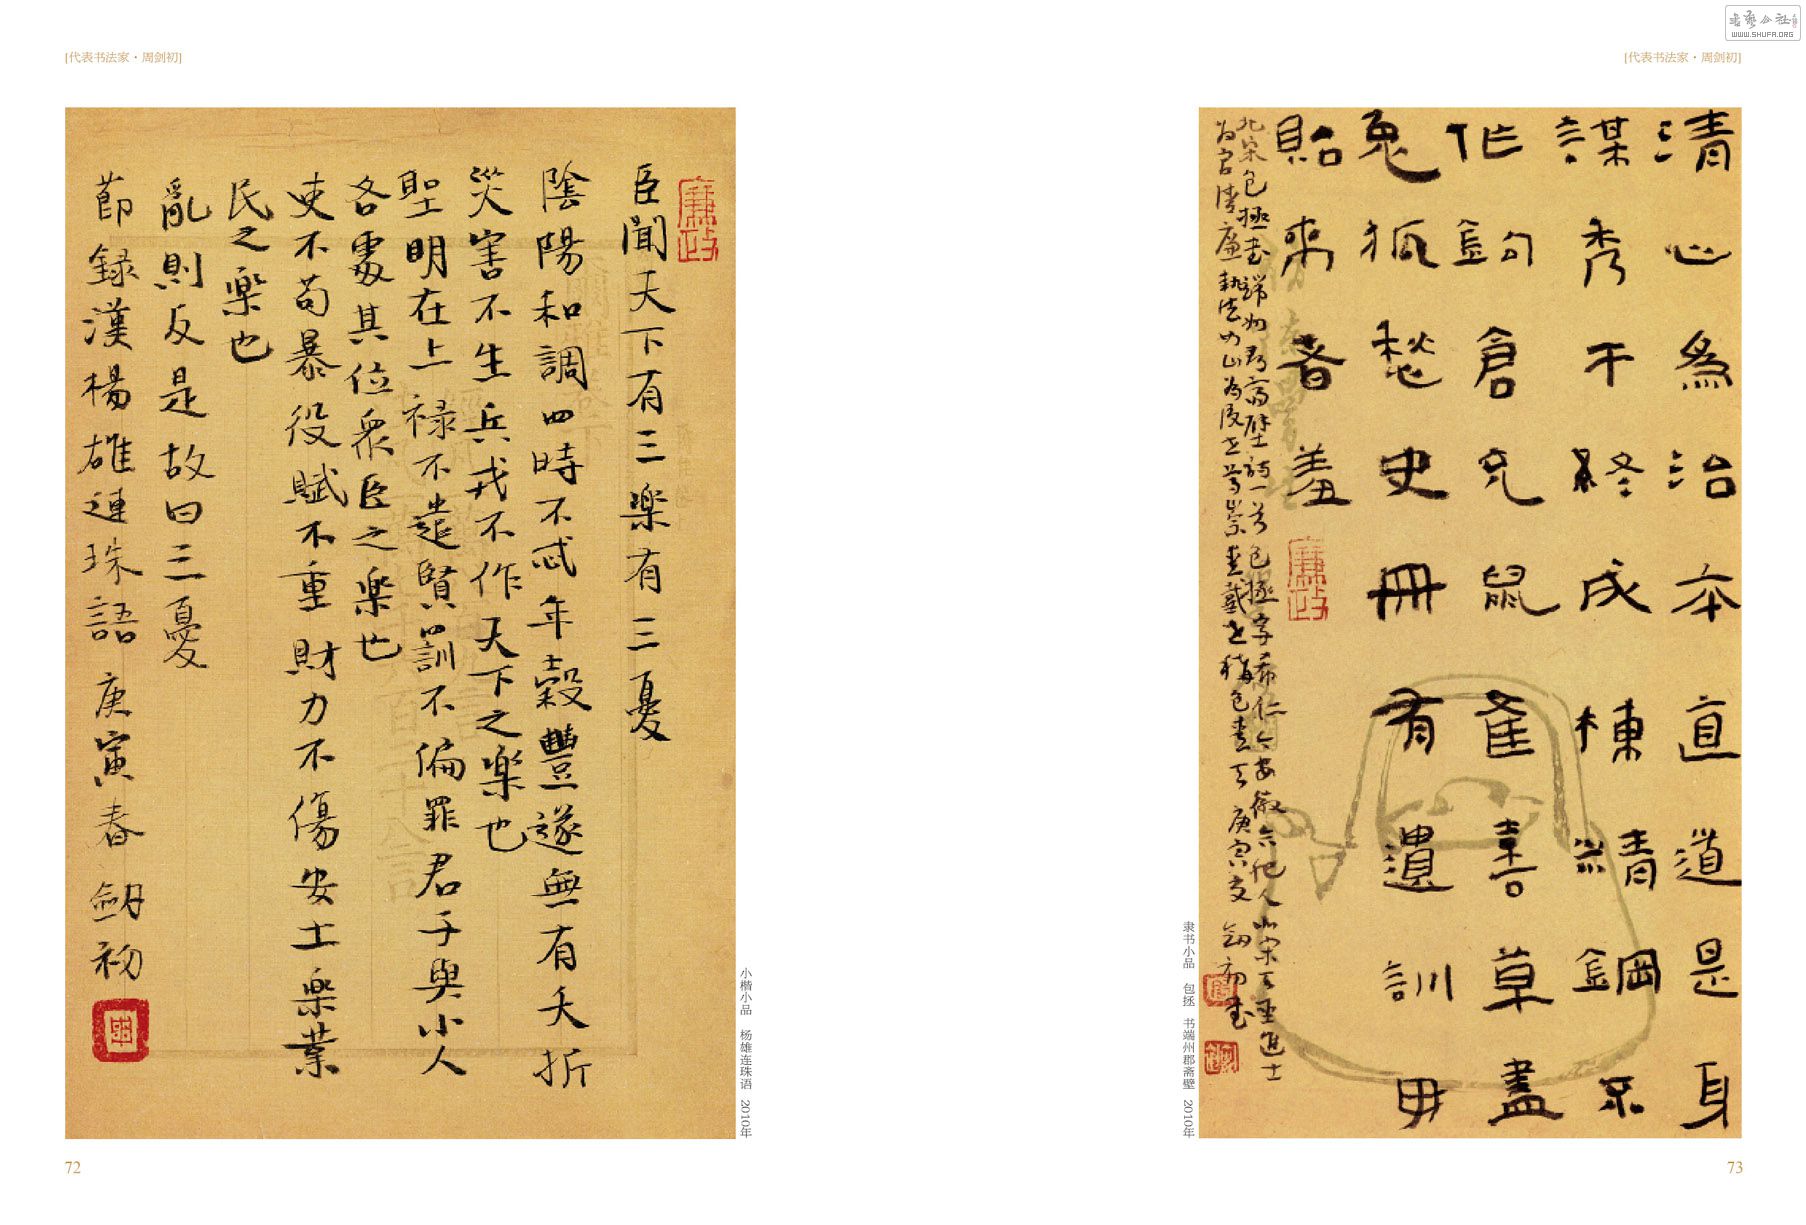 [代表书法家·周剑初]
廉政
臣聞天下有三樂有三憂
陰陽和調四時不忒年穀豐遂無有夭折
災害不生兵戎不作天下之樂也
聖明在上禄不遺賢罰不偏罪君子與小人
各處其位衆臣之樂也
吏不苟暴役賦不重財力不傷安土樂業
民之樂也
亂則反是故曰三憂
節録漢楊雄連珠語庚寅春劍初
小楷小品 杨雄连珠语 2010年
72
书艺公社
WWW.SHUFA.ORG
[代表书法家·周剑初]
清心為治本直道是身
謀秀干終成棟精鋼不
作鉤倉充鼠雀喜草盡
兔狐愁史冊有遺訓毋
貽來者羞
廉政
北宋包拯書端州郡齋壁詩一首包拯字希仁今安徽合肥人北宋天聖進士
为官清廉執法如山為後世尊崇愛戴世稱包青天庚寅夏劍初書
隶书小品 包拯 书端州郡斋壁 2010年
73